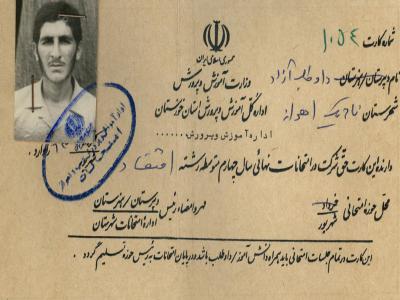 شماره کارت ۱۰۵۴
جمهوری اسلامی ایران
وزارت آموزش و پرورش
نام دبیرستان / هنرستان داوطلب آزاد
اداره کل آموزش و پرورش استان خوزستان
شهرستان ناحیه یک اهواز
اداره آموزش و پرورش ......
دارنده این کارت حق شرکت در امتحانات نهائی سال چهارم متوسطه رشته اقتصاد
محل حوزه امتحانی خرداد شهریور
مهر و امضاء رئیس دبیرستان / هنرستان
اداره امتحانات شهرستان
این کارت در تمام جلسات امتحانی باید همراه دانش آموز / داوطلب باشد و در پایان امتحانات به رئیس حوزه تسلیم گردد.